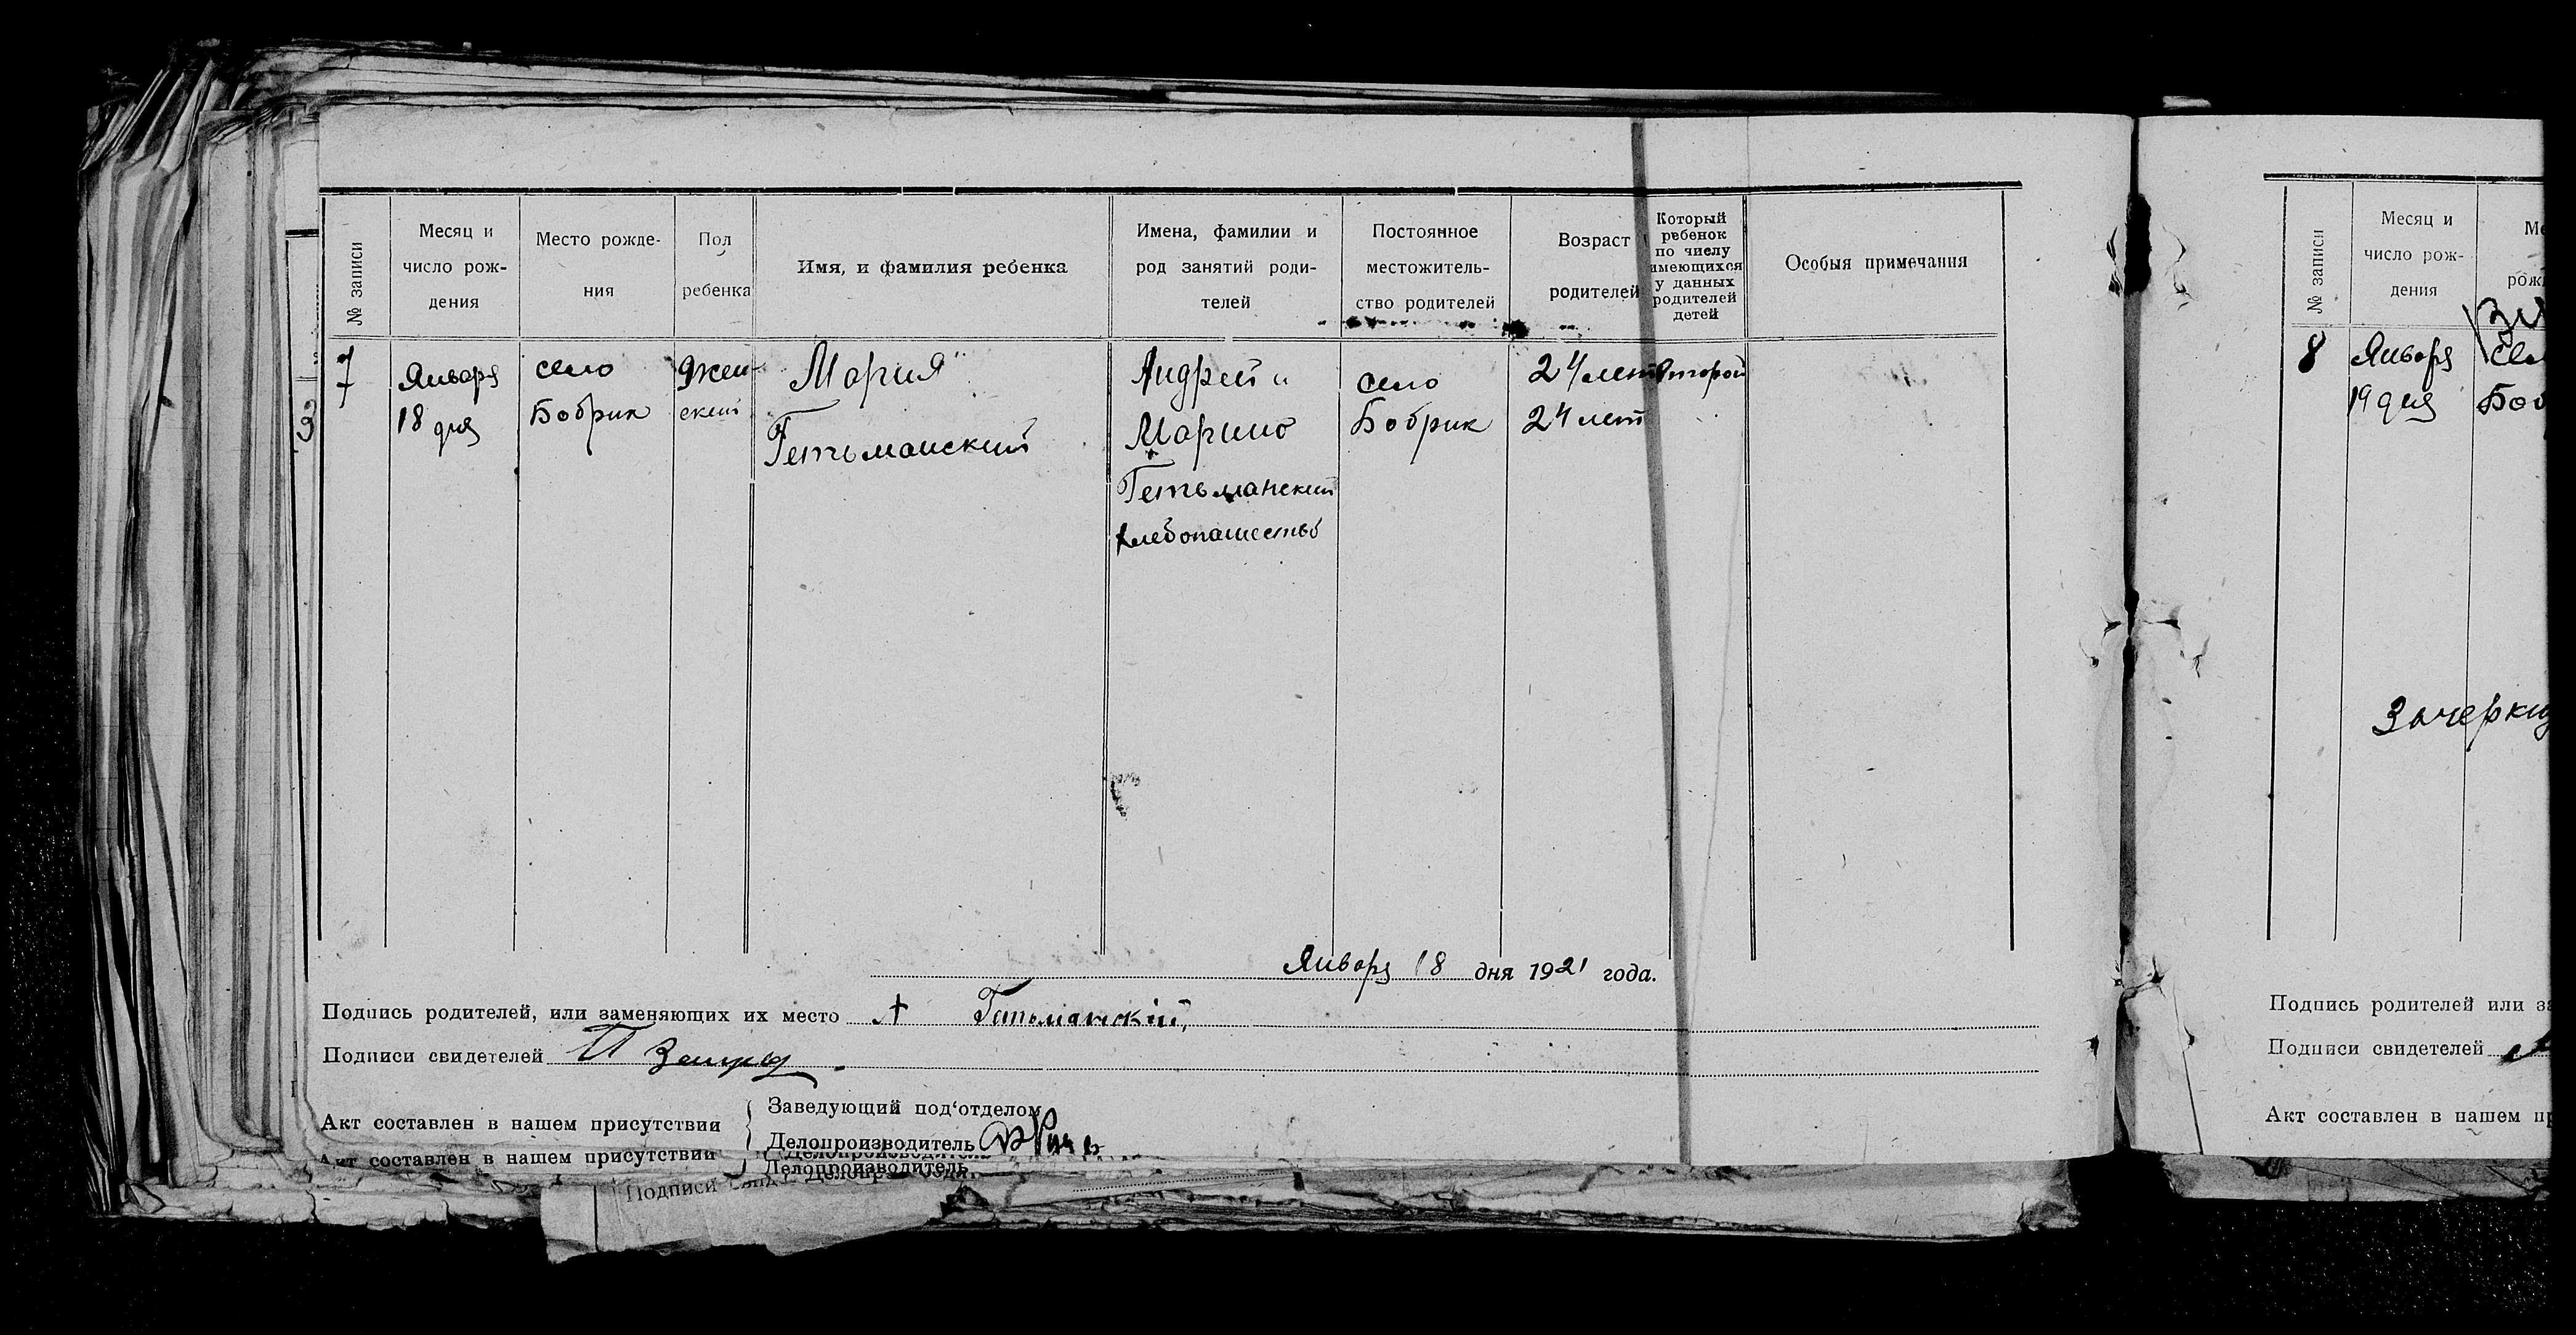 № записи
Месяц и
число рож-
дения
Место рожде-
ния
Пол
ребенка
Имя, и фамилия ребенка
Имена, фамилии и
род занятий роди-
телей
Постоянное
местожитель-
ство родителей
Возраст
родителей
Который
ребенок
по числу
имеющихся
у данных
родителей
детей
Особыя примечания
7
Января
18 дня
село
Бобрик
жен-
ский
Мария
Гетьманский
Андрей и
Марина
Гетьманский
хлебопашество
село
Бобрик
24 лет
24 лет
второй
Января 18 дня 1921 года.
Подпись родителей, или заменяющих их место А Гетьманский,
Подписи свидетелей П
Акт составлен в нашем присутствии
Заведующий под‘отделом
Делопроизводитель
Акт составлен в нашем присутствии
Делопроизводитель
Подписи
3
№ записи
Месяц и
число рож-
дения
8
Января
19 дня
Подпись родителей или
Подписи свидетелей
Акт составлен в нашем